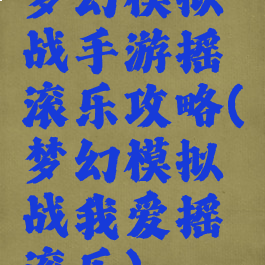 梦幻模拟
战手游摇
滚乐攻略(
梦幻模拟
战我爱摇
滚乐)